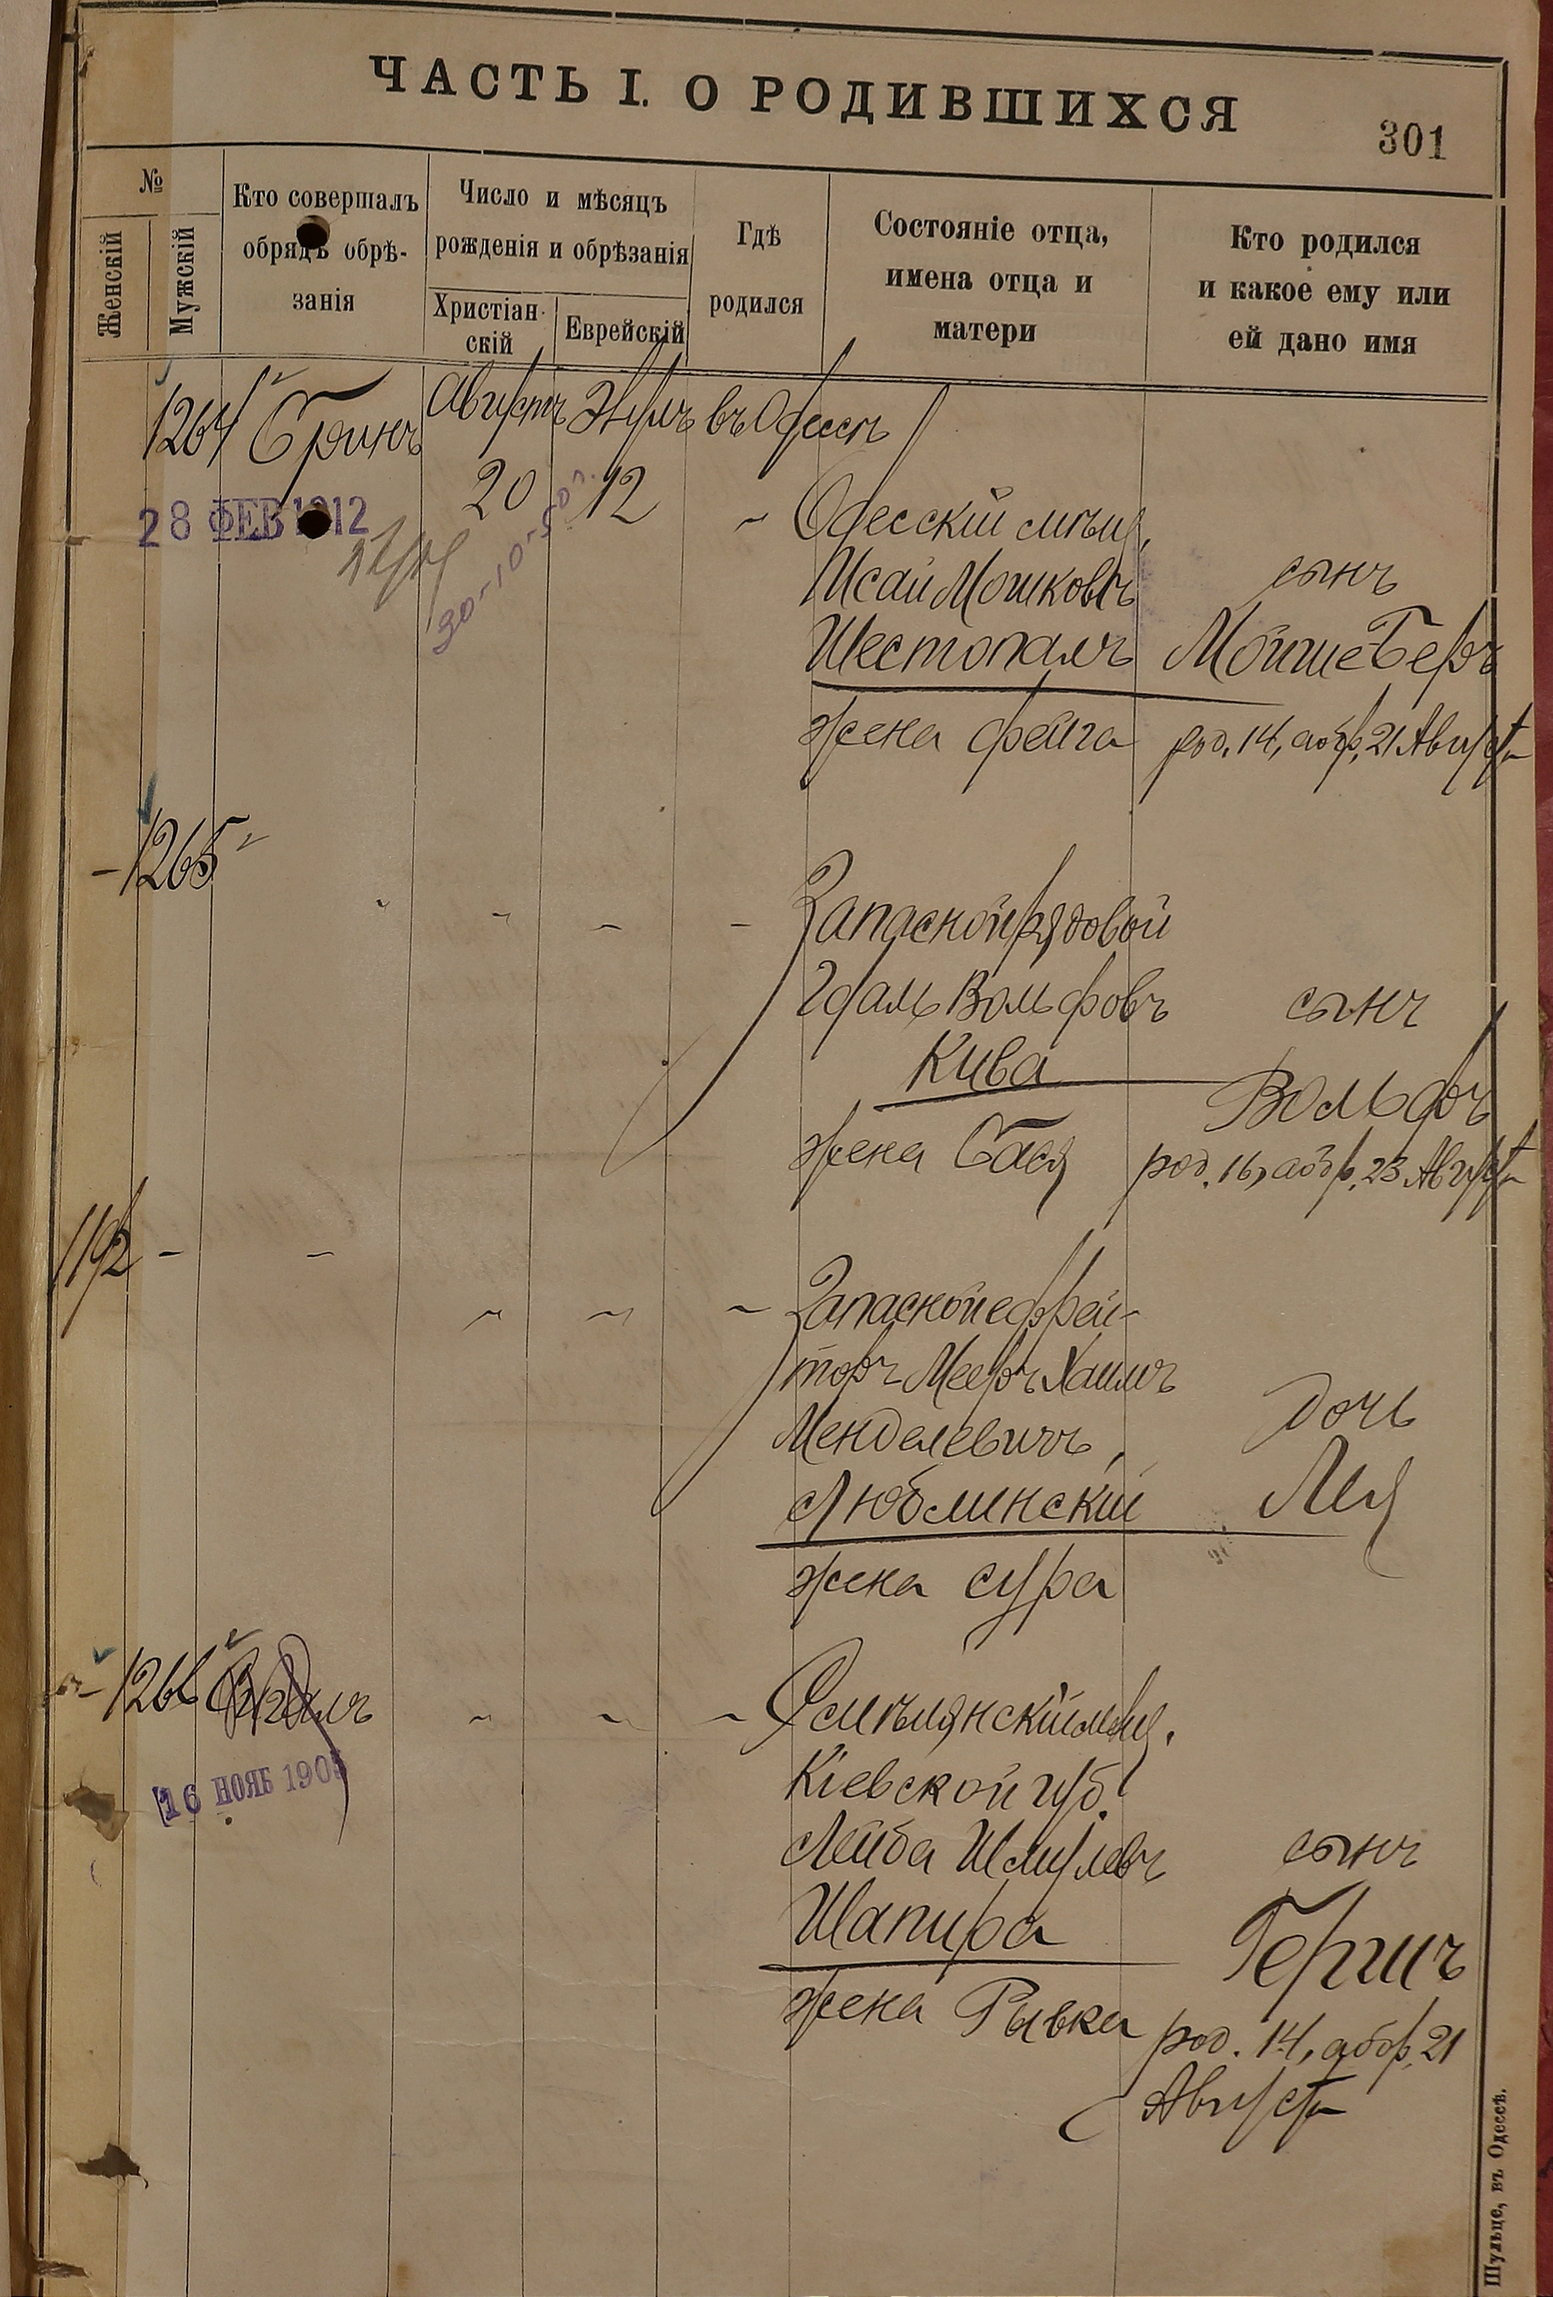 ЧАСТЬ I. О РОДИВШИХСЯ
301
№
Женскій
Мужскій
Кто совершалъ
обрядъ обрѣ-
занія
Число и мѣсяцъ
рожденія и обрѣзанія
Христіан-
скій
Еврейскій
Гдѣ
родился
Состояніе отца,
имена отца и
матери
Кто родился
и какое ему или
ей дано имя
1264
Августъ
Элулъ
въ Одессѣ
20
12
28 ФЕВ 1912
30-10-50 г.
Одесскій мѣщ.
Исай Мошковъ
Шестопалъ
жена Фейга
сынъ
Мойше Беръ
род. 14, а обр. 21 Августа
- 1265
Запасной рядовой
Гдаль Вольфовъ
Кива
жена Бася
сынъ
Вольфъ
род. 16, а обр. 23 Августа
1192 -
Запасной ефрей-
торъ Мееръ Хаимъ
Менделевичъ,
Люблинскій
жена Сура
дочь
Лея
- 1266
16 НОЯБ 190
Смѣлянскій мѣщ.
Кіевской губ.
Лейба Шмулевъ
Шапира
жена Рывка
сынъ
Гершъ
род. 14, а обр. 21
Августа
Шульце, въ Одессѣ.